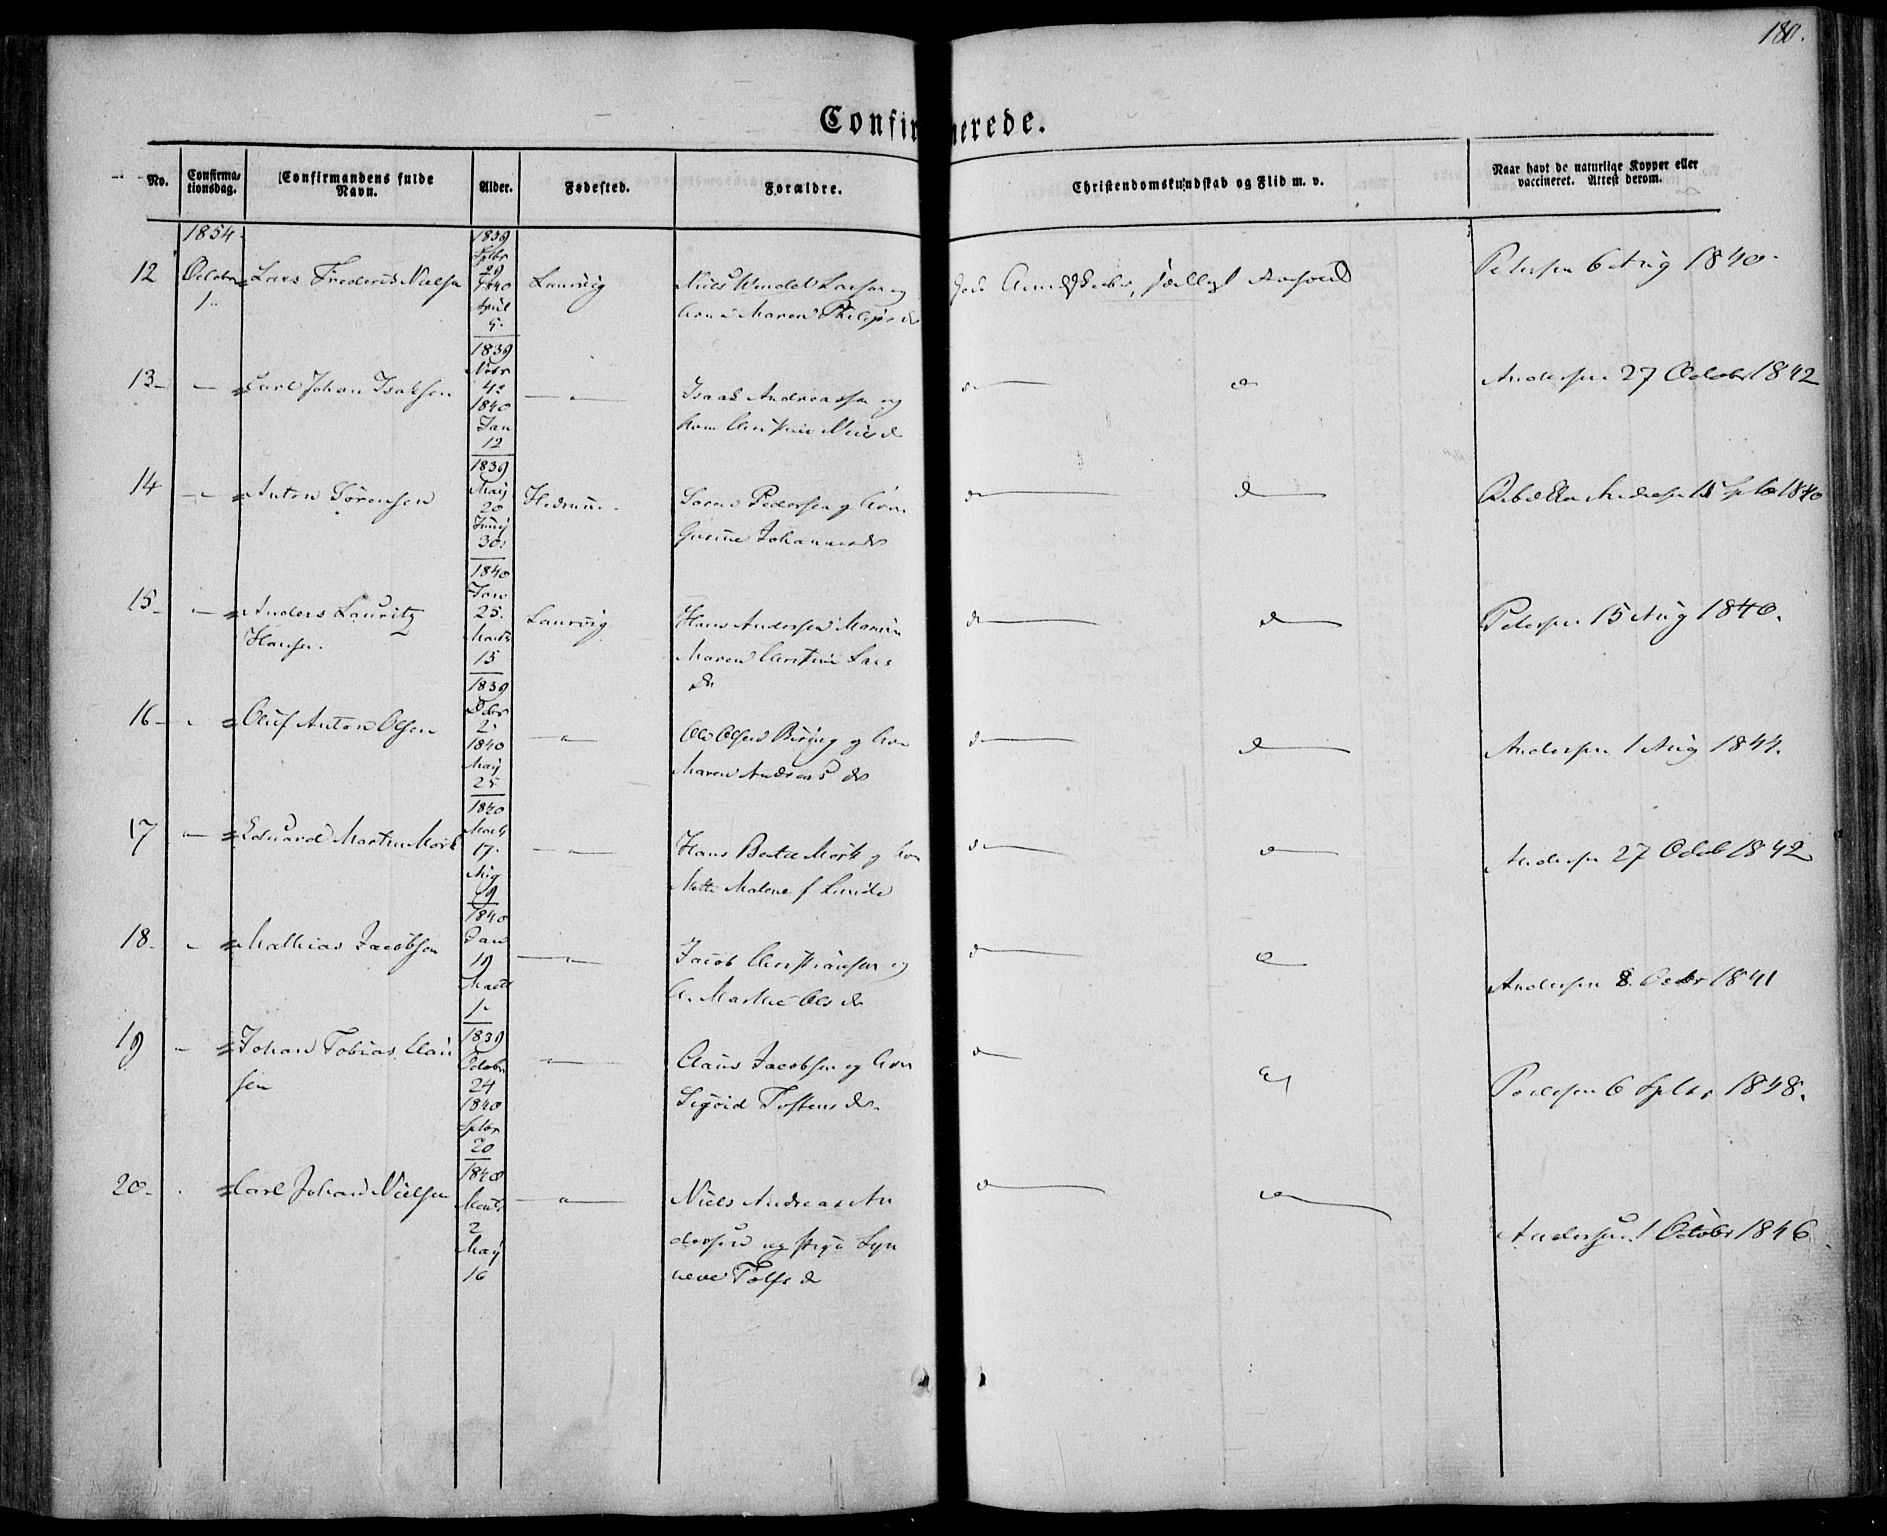 180.
Confirmerede.
No.
Confirma-
tionsdag.
Confirmandens fulde
Navn.
Alder.
Fødested.
Forældre.
Christendomskundskab og Flid m. v.
Naar havt de naturlige Kopper eller
vaccineret. Attest derom.
1854
12 Octobr 1 Lars Frederik Nielsen
1839
Sptbr
29
1840
April
5
Laurvig
Niels Wendel Larsen og
Maren Philips d
gode Kundskaber, sædeligt Forhold
Petersen 6 Aug 1840.
13 — Carl Johan Isaksen
1839
Novbr
4
1840
Jan
12
Isaak Andreassen og
Kone Christine Niels d
d d
Andersen 27 October 1842
14 Anton Sörensen
1839
Maij
20
Junij
30
Hedrum
Soren Pedersen og Kone
Johannes d
d d
15 Sptb 1840
15 — Anders Lauritz
Hansen.
1840
Jan
25.
Marts
15
Laurvig
Hans Andersen
Maren Christine Lars
d
d d
Petersen 15 Aug 1840.
16 Oluf Anton Olsen
1839
Debr
2
1840
Maij
25
Ole Olsen og Kone
Maren Andreas d
d d
Andersen 1 Aug 1844.
17 — Edvard Martin Mörk
1840
Marts
17
Aug
9
Hans Mörk og Kone
Malene f Lunde
d d
Andersen 27 Octob 1842
18 Mathias Jacobsen
1840
Jan
19
Marts
1
Jacob Christiansen og
Marthe Ols d
d d
Andersen 8 Octbr 1841
19 — Johan Tobias Clau
sen
1839
Octobr
24
1840
Sptbr
20
Claus Jacobsen og Kone
Tostens d
d d
Pedersen 6 Sptbr 1848.
20 Carl Johan Nielsen
1840
Marts
2
Maij
16
Niels Andreas An
dersen og pige Syn
neve Tolfs d
d d
Andersen 1 Octobr 1846